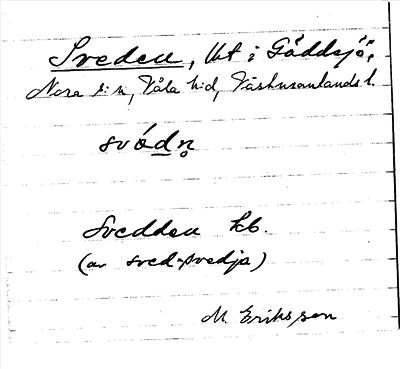 Sveden, tkt i Gåddsjö,
Nora s:n, Våla hd, Västernorrlands l.
Svedden kb.
(av sved-svedja)
M Eriksson